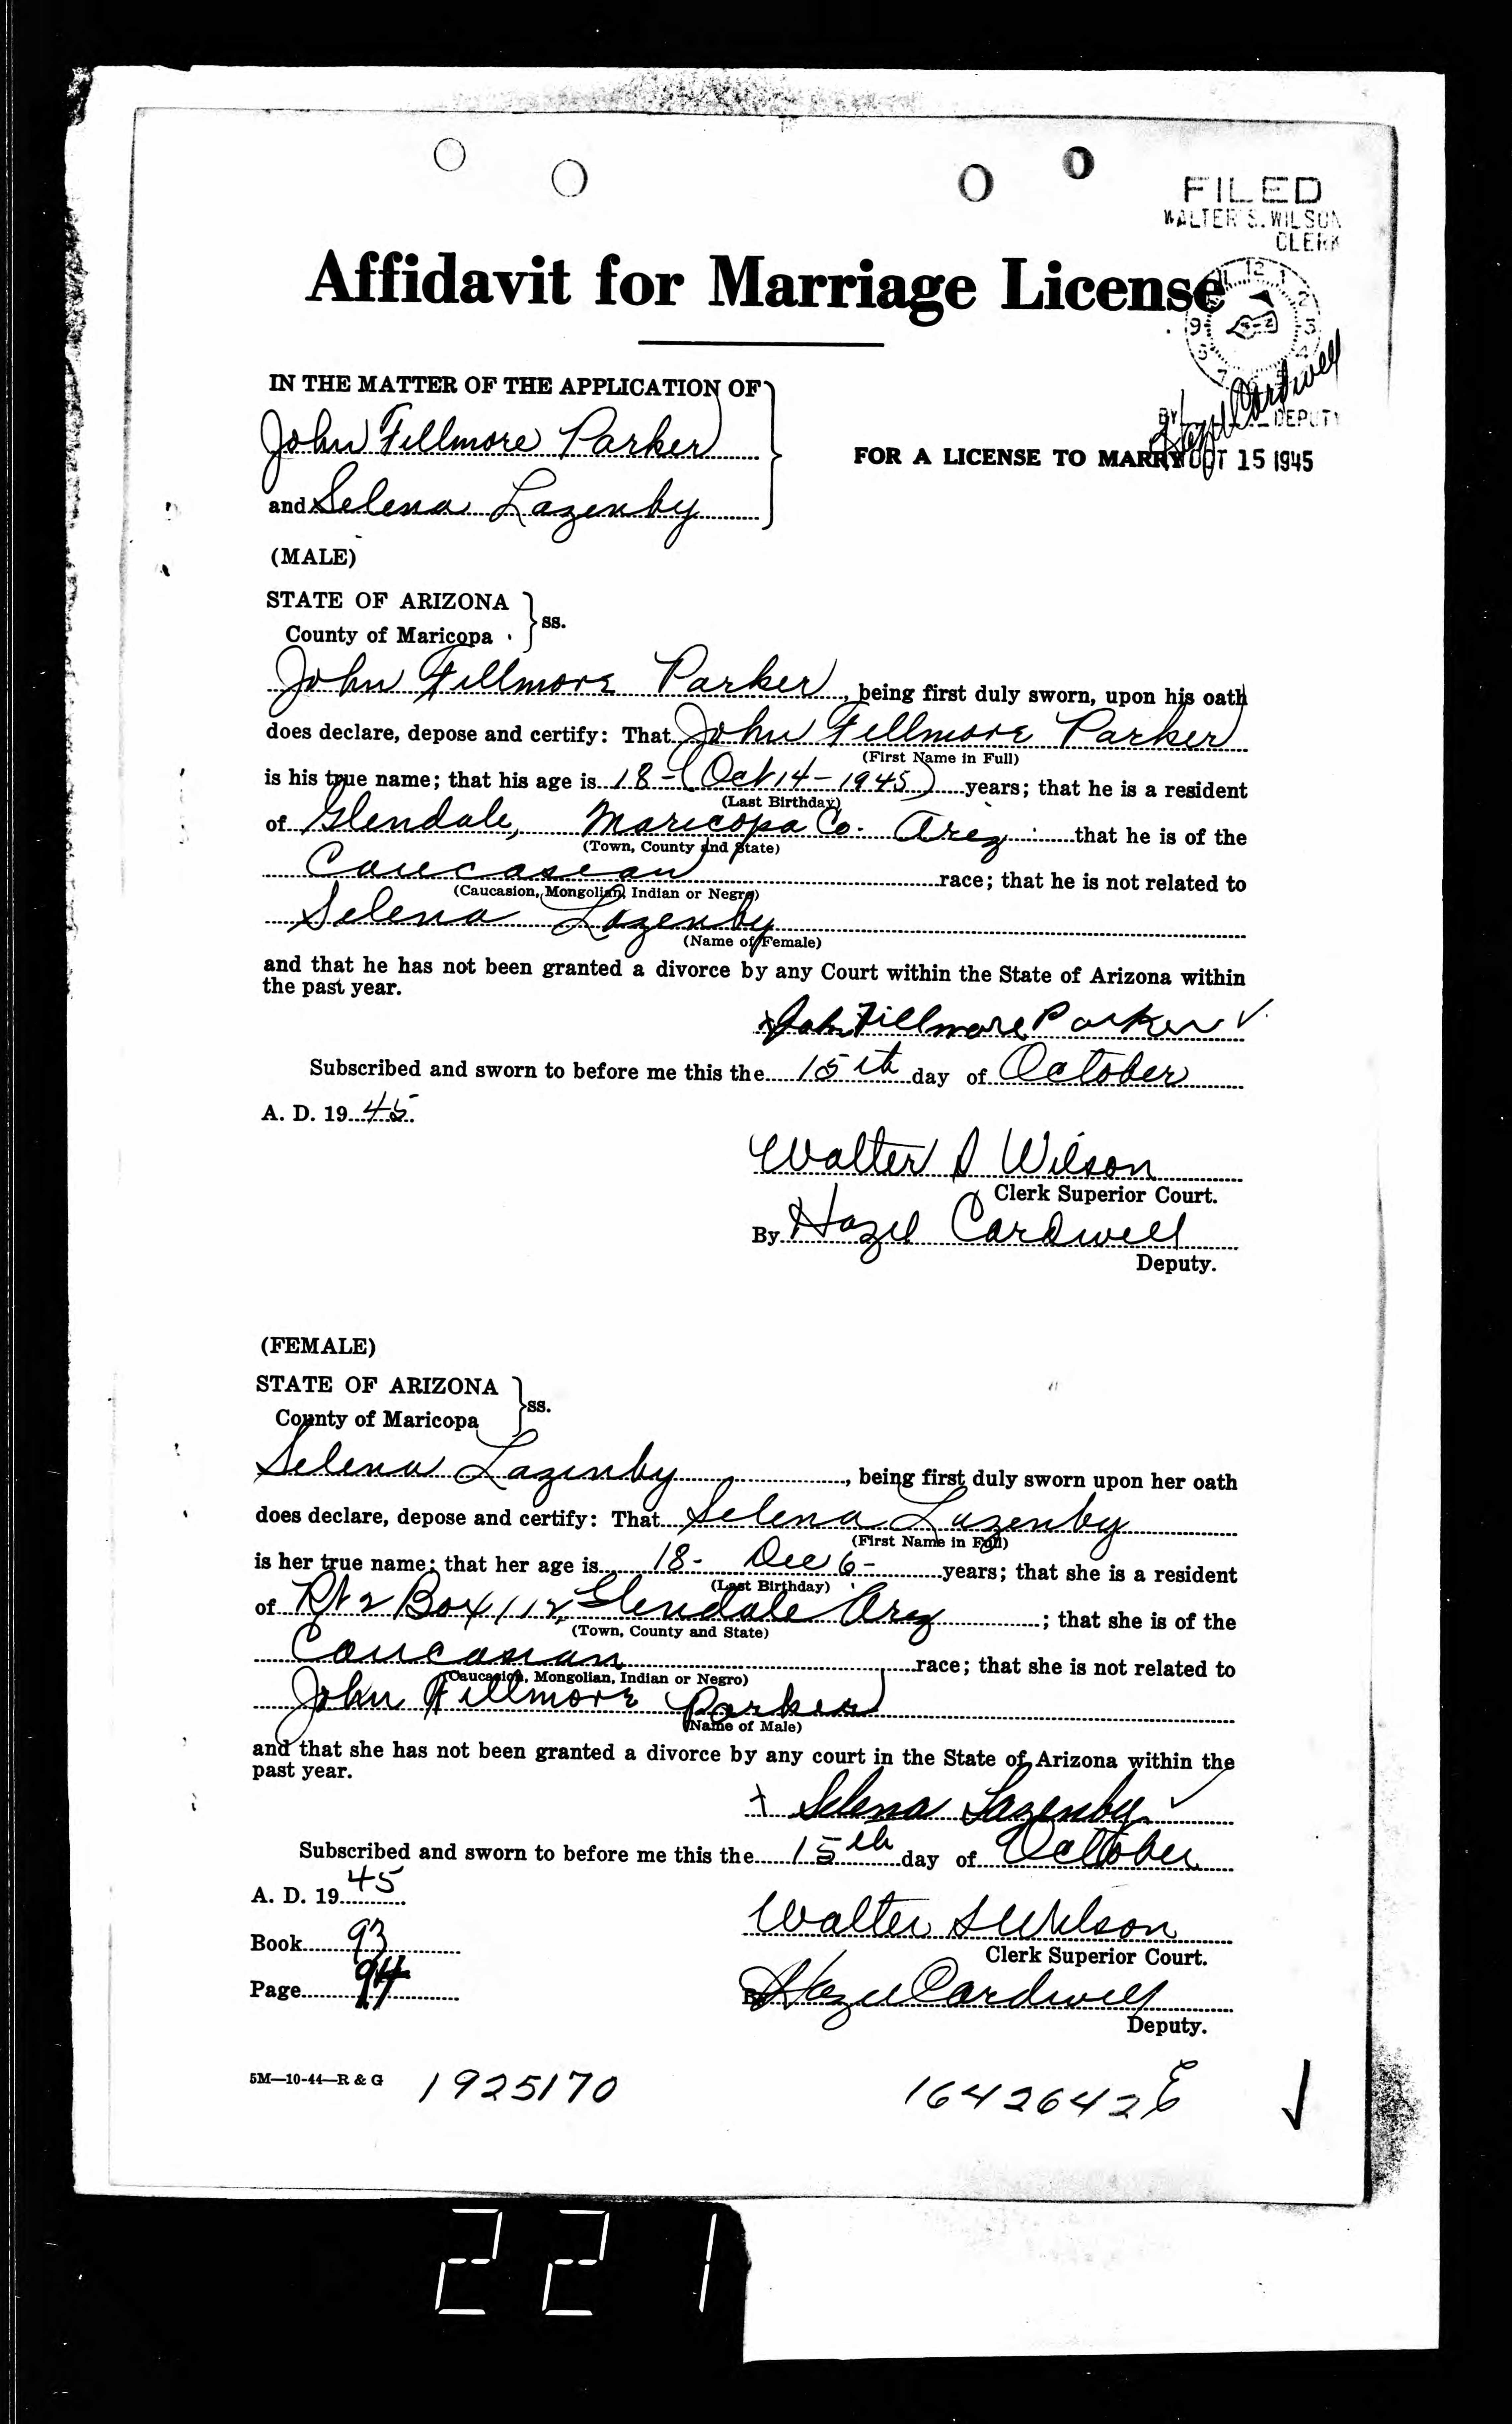 FILED
WALTER S. WILSON
CLERK
Affidavit for Marriage License
12 1 2 3
9
IN THE MATTER OF THE APPLICATION OF
John Fillmore Parker
and Selena Lazenby
BY Hazel Cardwell DEPUTY
FOR A LICENSE TO MARRY OCT 15 1945
(MALE)
STATE OF ARIZONA
County of Maricopa ss.
John Fillmore Parker, being first duly sworn, upon his oath
does declare, depose and certify: That John Fillmore Parker
(First Name in Full)
is his true name; that his age is 18-(Oct 14-1945) years; that he is a resident
(Last Birthday)
of Glendale, Maricopa Co. Ariz that he is of the
(Town, County and State)
Caucasean race; that he is not related to
(Caucasion, Mongolian, Indian or Negro)
Selena Lazenby
(Name of Female)
and that he has not been granted a divorce by any Court within the State of Arizona within
the past year.
x John Fillmore Parker ✓
Subscribed and sworn to before me this the 15th day of October
A. D. 1945.
Walter S Wilson
Clerk Superior Court.
By Hazel Cardwell
Deputy.
(FEMALE)
STATE OF ARIZONA
County of Maricopa ss.
Selena Lazenby, being first duly sworn upon her oath
does declare, depose and certify: That Selena Lazenby
(First Name in Full)
is her true name; that her age is 18- Dec 6- years; that she is a resident
(Last Birthday)
of Rt 2 Box 112, Glendale Ariz; that she is of the
(Town, County and State)
Caucasian race; that she is not related to
(Caucasion, Mongolian, Indian or Negro)
John Fillmore Parker
(Name of Male)
and that she has not been granted a divorce by any court in the State of Arizona within the
past year.
x Selena Lazenby ✓
Subscribed and sworn to before me this the 15th day of October
A. D. 1945
Walter S Wilson
Clerk Superior Court.
Book 93
Page 94
By Hazel Cardwell
Deputy.
5M—10-44—R & G 1925170 1642642 ✓
221